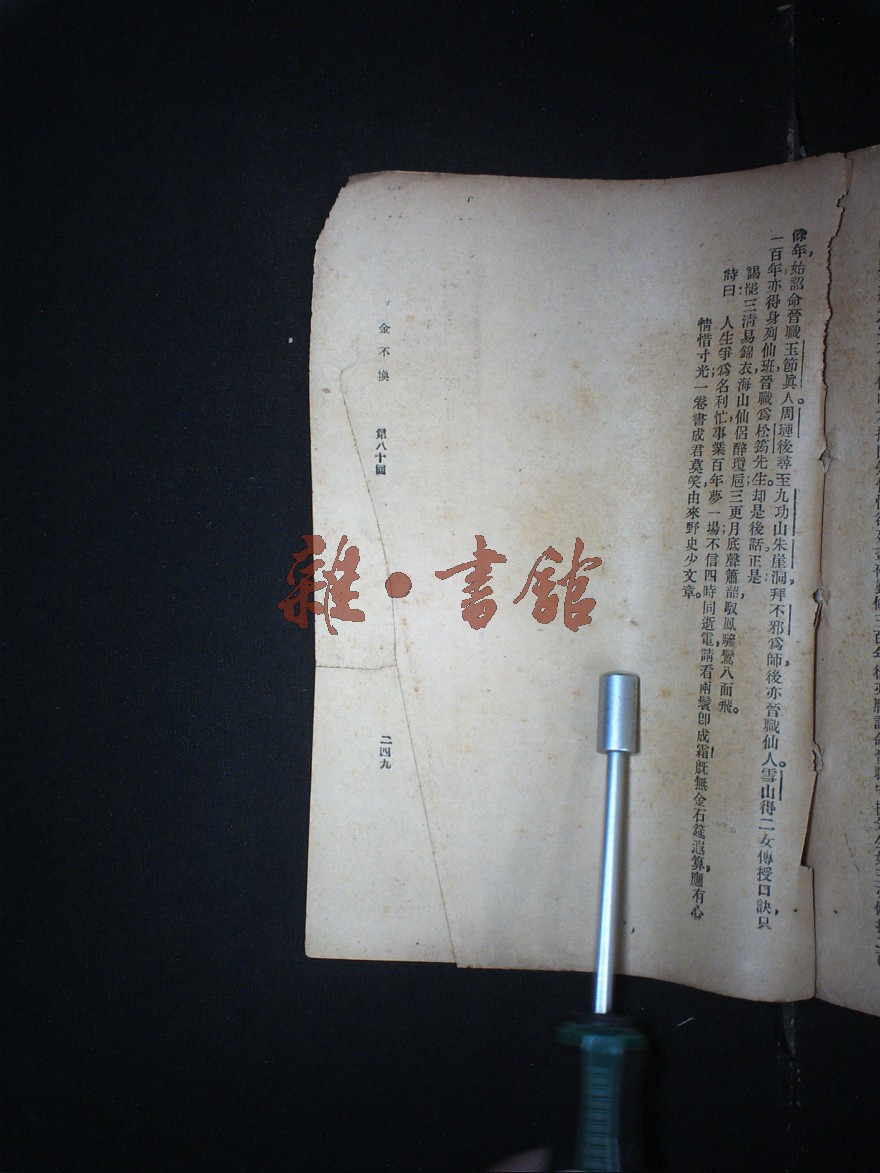 餘年，始詔命晉職玉節眞人。周璉後尋至九功山朱崖洞，拜不邪爲師，後亦晉職仙人。雪山得二女傳授口訣，只
一百年亦得身列仙班，晉職爲松筠先生。却是後話，正是：
謁罷三清易錦衣，海山仙侶醉瓊巵；三更月底聲簫韶，取鳳驂鸞八面飛。
詩曰：人生爭爲名利忙，事業百年夢一場；不信四時同逝電，請看兩鬢卽成霜！旣無金石筵遐算，應有心
情惜寸光；一卷書成君莫笑，由來野史少文章。
金不換　第八十回
二四九
雜·書館